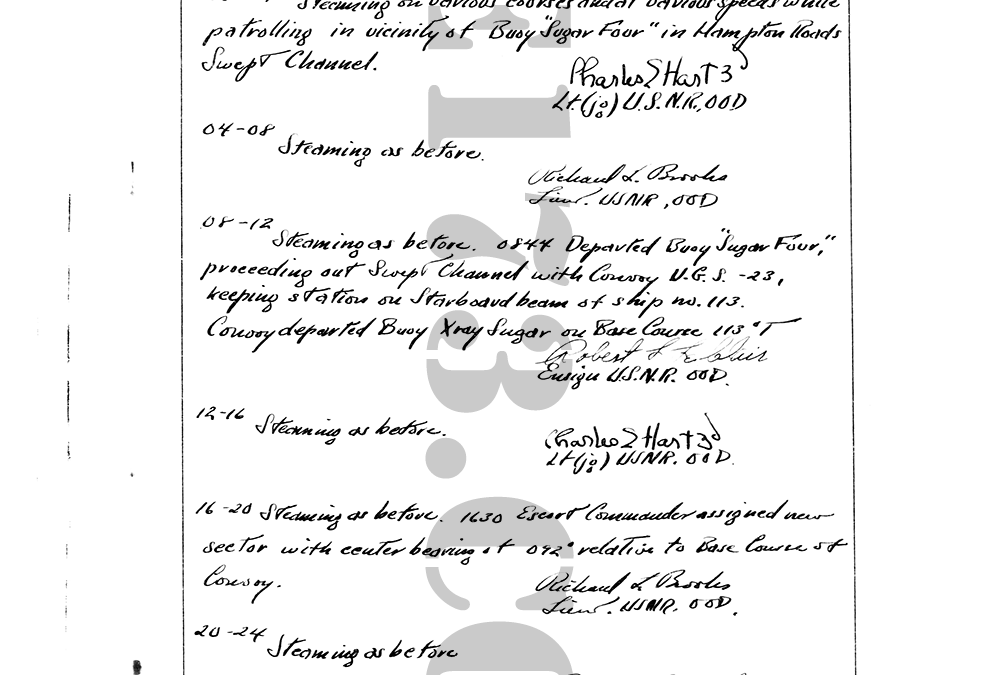 Steaming on various courses and at various speeds while
patrolling in vicinity of Buoy "Sugar Four" in Hampton Roads
Swept Channel.
Charles E Hart 3d
Lt.(jg) U.S.N.R., OOD
04-08
Steaming as before.
Richard L. Brooks
Lieut. USNR, OOD
08-12
Steaming as before. 0844 Departed Buoy "Sugar Four,"
proceeding out Swept Channel with Convoy U.G.S. -23,
keeping station on Starboard beam of ship no. 113.
Convoy departed Buoy Xray Sugar on Base Course 113°T
Robert
Ensign U.S.N.R. OOD.
12-16 Steaming as before.
Charles E Hart 3d
Lt(jg) USNR. OOD.
16-20 Steaming as before. 1630 Escort Commander assigned new
sector with center bearing at 092° relative to Base Course of
Convoy.
Richard L Brooks
Lieut. USNR. OOD.
20-24
Steaming as before